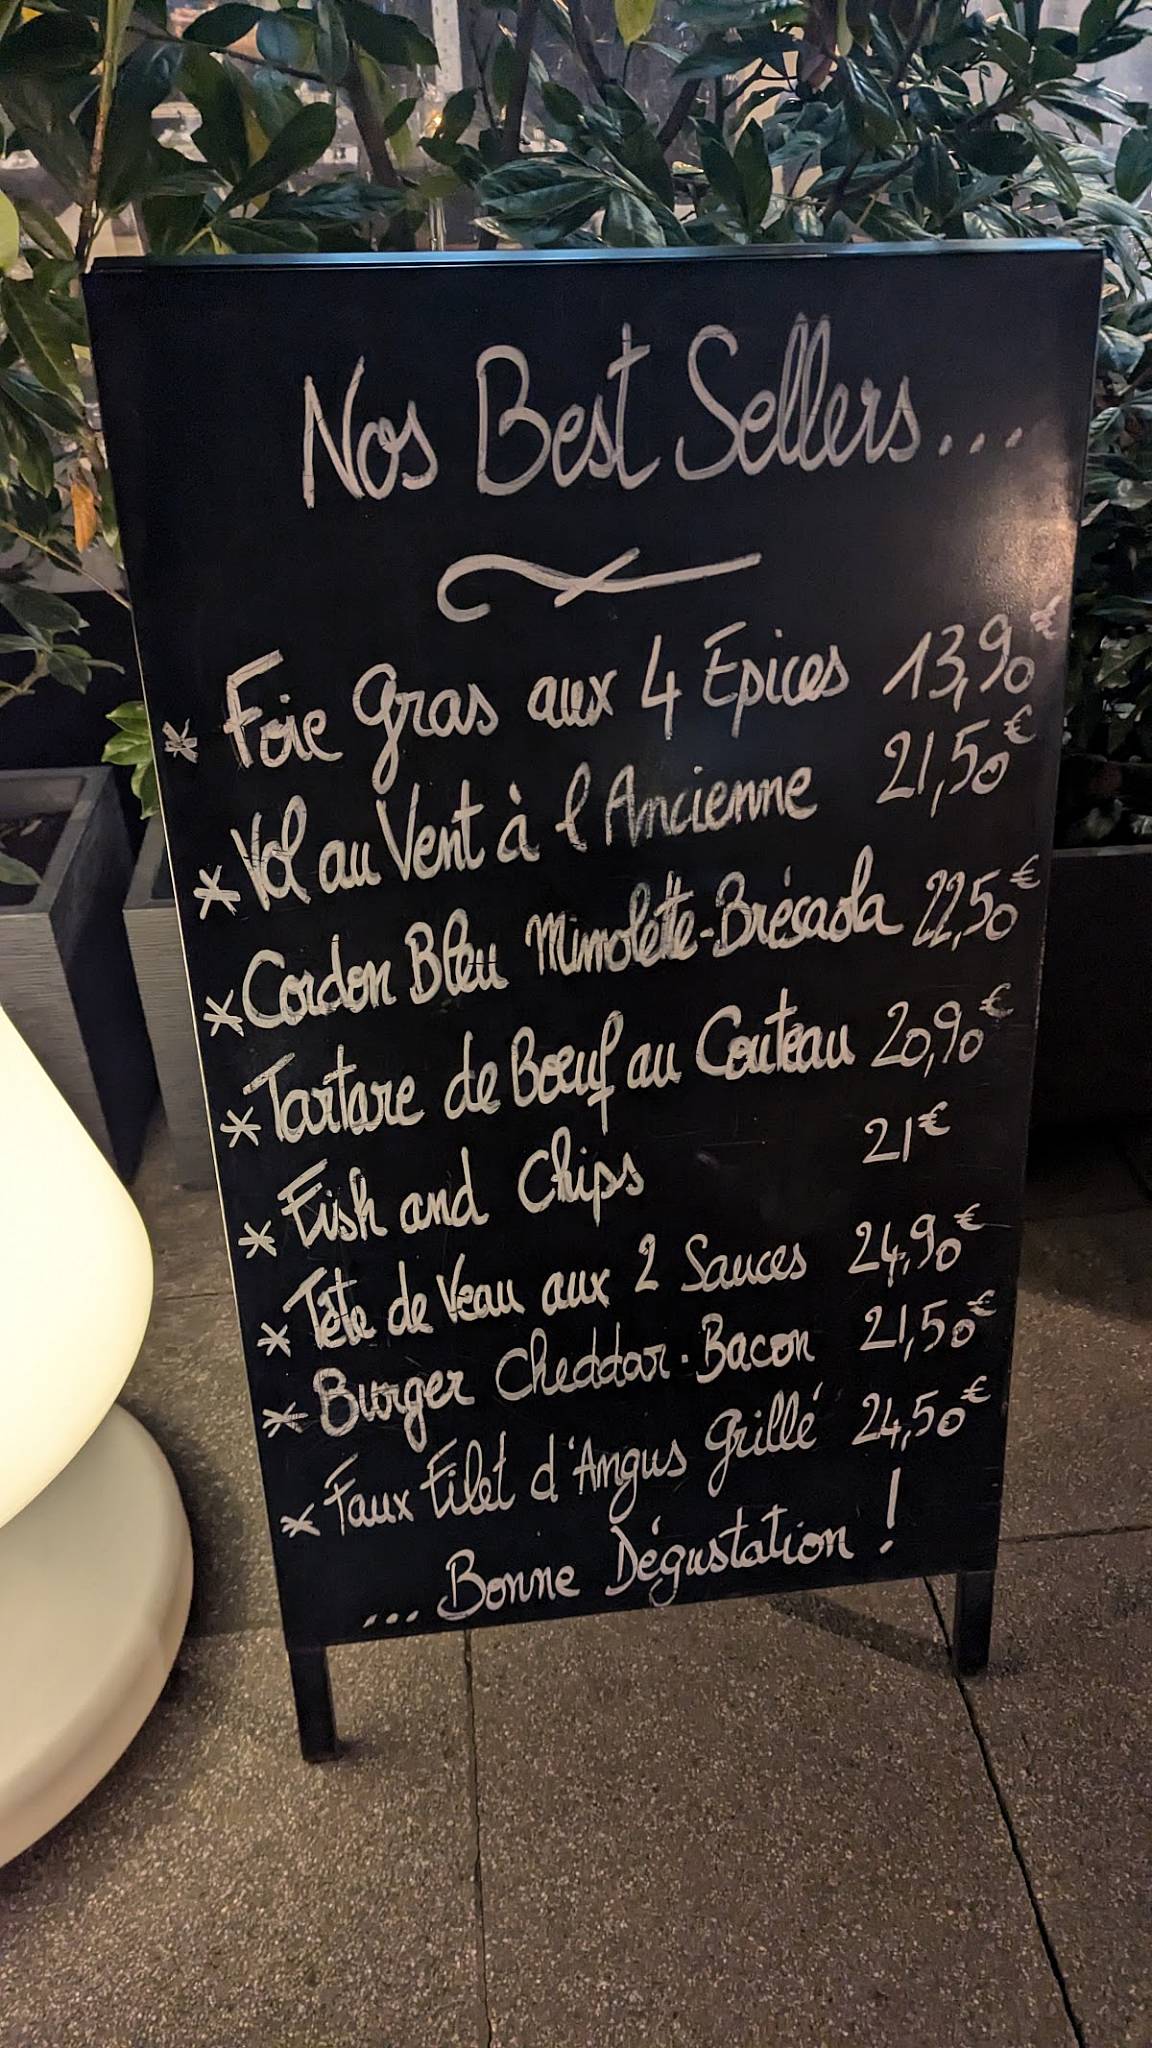 Nos Best Sellers...
* Foie Gras aux 4 Epices 13,90€
* Vol au Vent à l'Ancienne 21,50€
* Cordon Bleu Mimolette-Brésaola 22,50€
* Tartare de Bœuf au Couteau 20,90€
* Fish and Chips 21€
* Tête de Veau aux 2 Sauces 24,90€
* Burger Cheddar-Bacon 21,50€
* Faux Filet d'Angus Grillé 24,50€
...Bonne Dégustation !